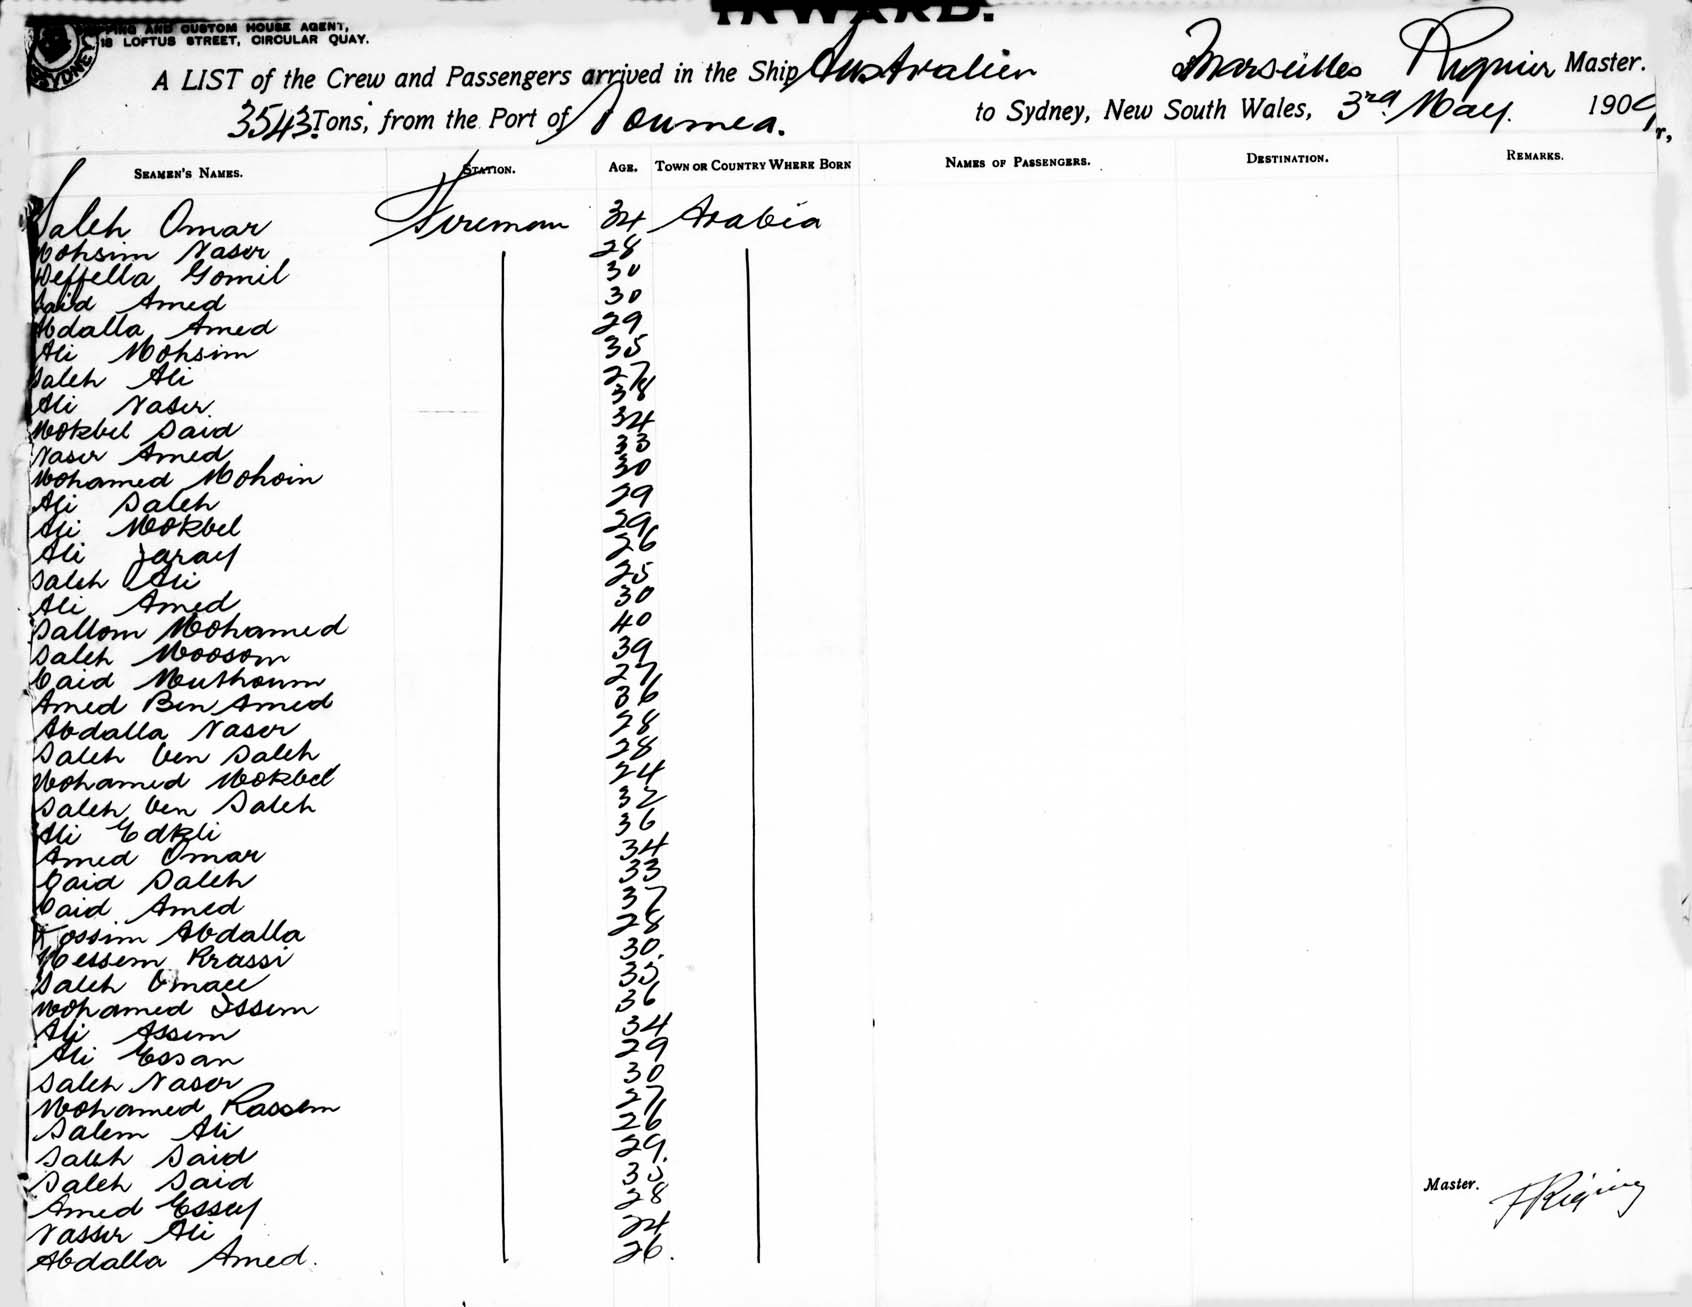 INWARD.
PING AND CUSTOM HOUSE AGENT,
18 LOFTUS STREET, CIRCULAR QUAY.
SYDNEY
A LIST of the Crew and Passengers arrived in the Ship Australien of Marseilles Master.
3543 Tons, from the Port of Noumea. to Sydney, New South Wales, 3rd May. 1909
SEAMEN'S NAMES. STATION. AGE. TOWN OR COUNTRY WHERE BORN NAMES OF PASSENGERS. DESTINATION. REMARKS.
Saleh Omar Fireman 34 Arabia
Mohsim Naser 28
Deffella Gomil 30
Said Amed 30
Abdalla Amed 29
Ali Mohsim 35
Saleh Ali 27
Ali Naser 38
Mokbel Said 34
Naser Amed 33
Mohamed Mohsin 30
Ali Saleh 29
Ali Mokbel 29
Ali 26
Saleh Ali 25
Ali Amed 30
Sallom Mohamed 40
Saleh Moosom 39
Caid Muthoum 27
Amed Ben Amed 36
Abdalla Naser 28
Saleh ben Saleh 28
Mohamed Mokbel 24
Saleh ben Saleh 32
Ali 36
Amed Omar 34
Caid Saleh 33
Caid Amed 37
Kossim Abdalla 28
Messem Krassi 30
Saleh 35
Mohamed Issem 36
Ali Assem 34
Ali Essan 29
Saleh Naser 30
Mohamed Kassem 27
Salem Ali 26
Saleh Said 29
Saleh Said 35
Amed Essey 28
Nasser Ali 24
Abdalla Amed. 26.
Master.